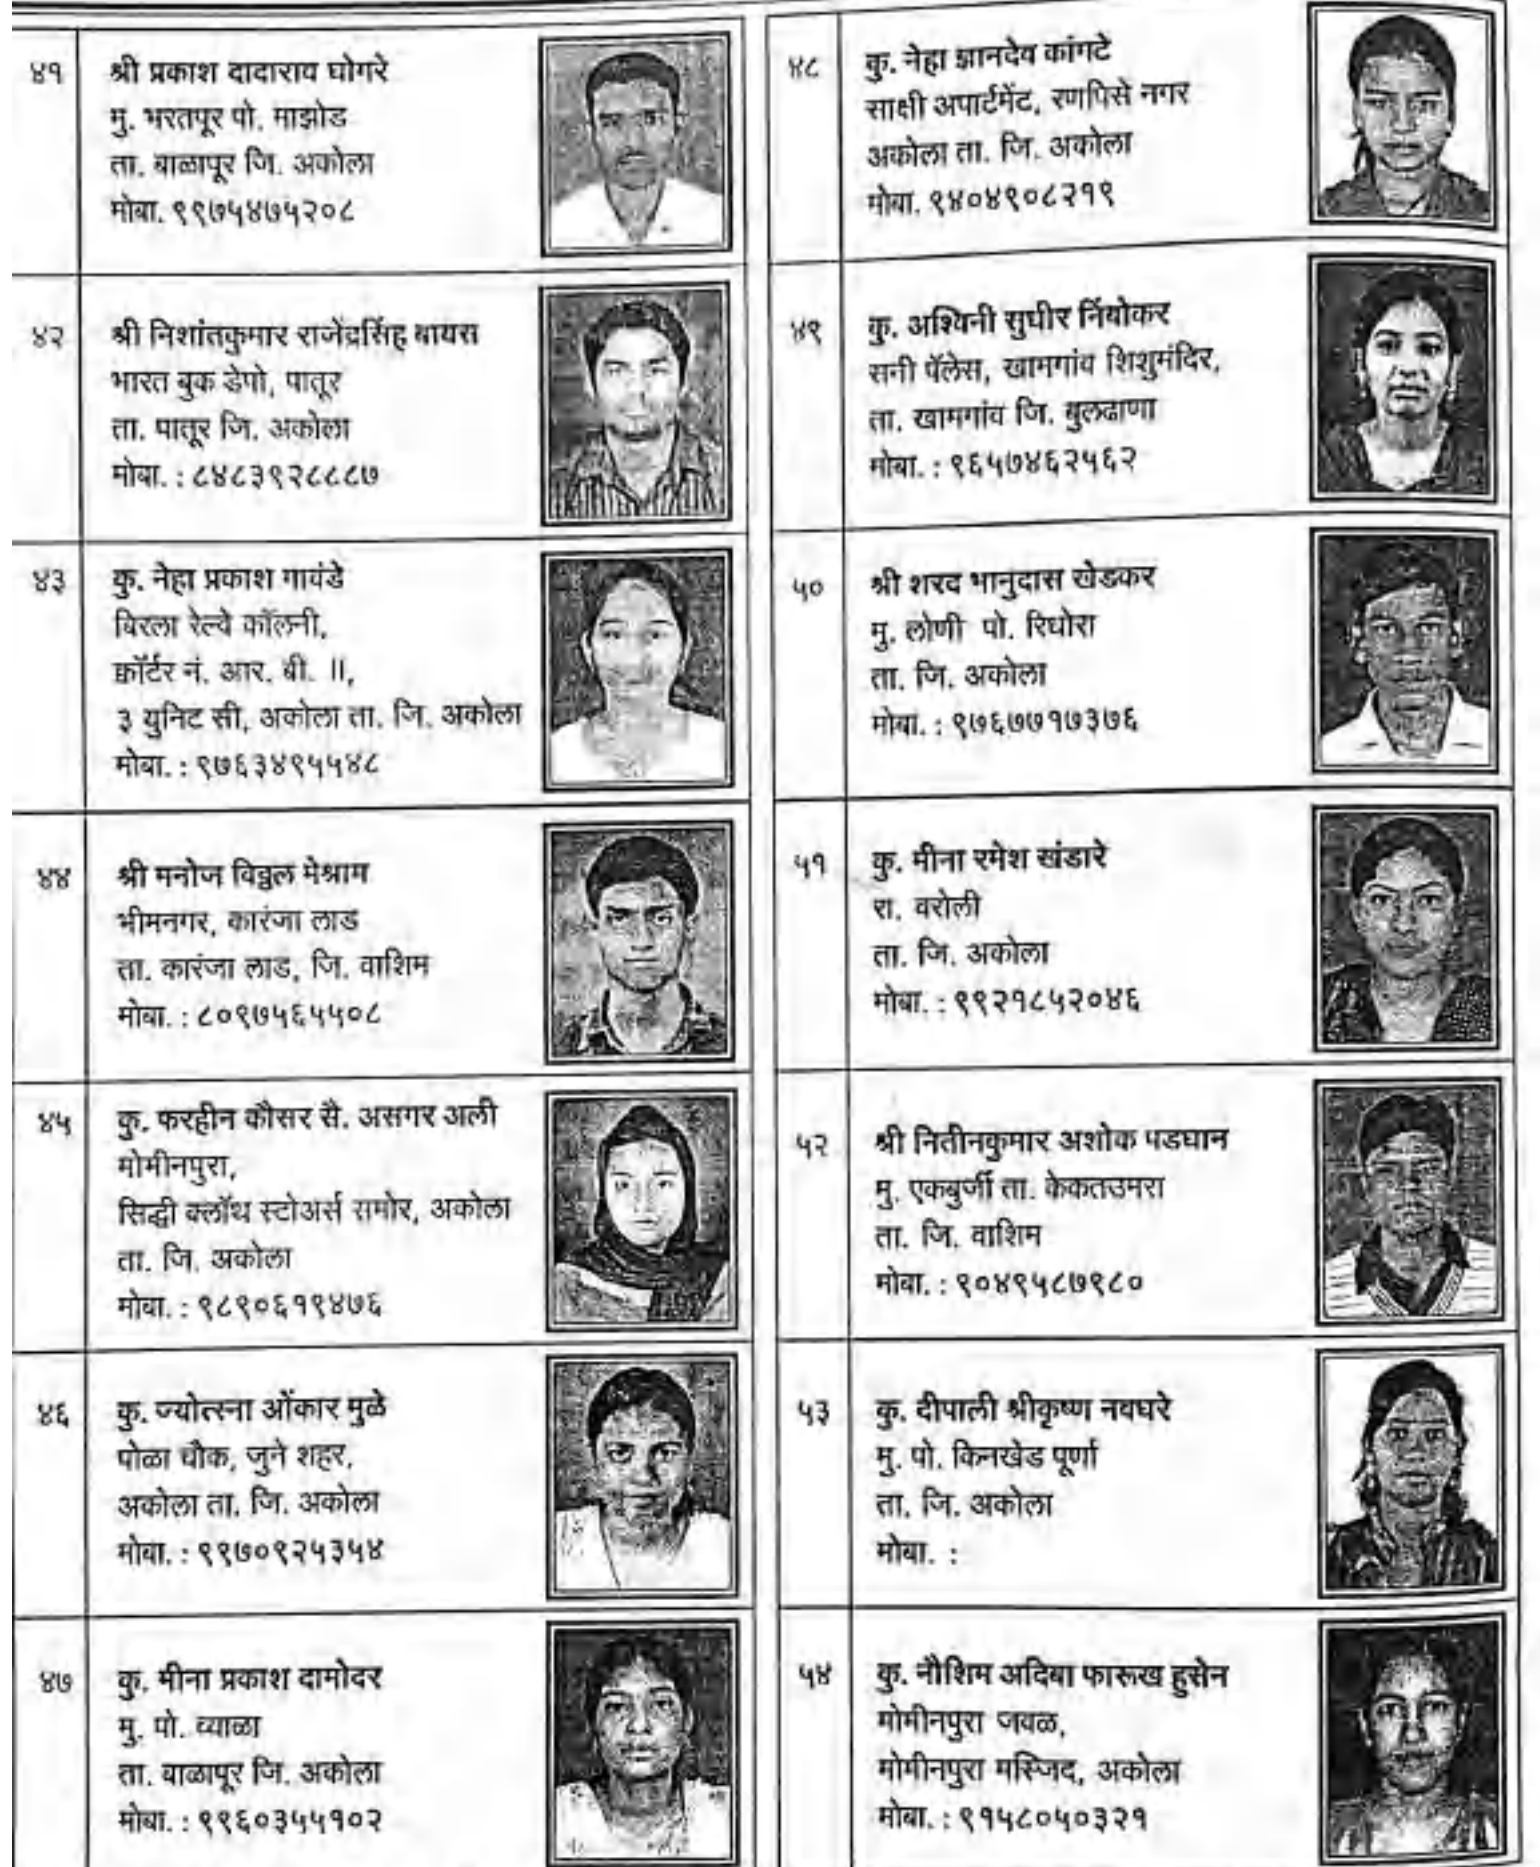 ४१
श्री प्रकाश दादाराव घोगरे
मु. भरतपूर पो. माझोड
ता. बाळापूर जि. अकोला
मोबा. ९९७५४७५२०८
४२
श्री निशांतकुमार राजेंद्रसिंह बायस
भारत बुक डेपो, पातूर
ता. पातूर जि. अकोला
मोबा. : ८४८३९२८८८७
४३
कु. नेहा प्रकाश गावंडे
बिरला रेल्वे कॉलनी,
क्वॉर्टर नं. आर. बी. II,
३ युनिट सी, अकोला ता. जि. अकोला
मोबा. : ९७६३४९५५४८
४४
श्री मनोज विठ्ठल मेश्राम
भीमनगर, कारंजा लाड
ता. कारंजा लाड, जि. वाशिम
मोबा. : ८०९७५६५५०८
४५
कु. फरहीन कौसर सै. असगर अली
मोमीनपुरा,
सिद्धी क्लॉथ स्टोअर्स समोर, अकोला
ता. जि. अकोला
मोबा. : ९८९०६१९४७६
४६
कु. ज्योत्स्ना ओंकार मुळे
पोळा चौक, जुने शहर,
अकोला ता. जि. अकोला
मोबा. : ९९७०९२५३५४
४७
कु. मीना प्रकाश दामोदर
मु. पो. व्याळा
ता. बाळापूर जि. अकोला
मोबा. : ९९६०३५५१०२
४८
कु. नेहा ज्ञानदेव कांगटे
साक्षी अपार्टमेंट, रणपिसे नगर
अकोला ता. जि. अकोला
मोबा. ९४०४९०८२१९
४९
कु. अश्विनी सुधीर निंबोकर
सनी पॅलेस, खामगांव शिशुमंदिर,
ता. खामगांव जि. बुलढाणा
मोबा. : ९६५७४६२५६२
५०
श्री शरद भानुदास खेडकर
मु. लोणी पो. रिधोरा
ता. जि. अकोला
मोबा. : ९७६७७१७३७६
५१
कु. मीना रमेश खंडारे
रा. वरोली
ता. जि. अकोला
मोबा. : ९९२१८५२०४६
५२
श्री नितीनकुमार अशोक पडघान
मु. एकबुर्जी ता. केकतउमरा
ता. जि. वाशिम
मोबा. : ९०४९५८७९८०
५३
कु. दीपाली श्रीकृष्ण नवघरे
मु. पो. किनखेड पूर्णा
ता. जि. अकोला
मोबा. :
५४
कु. नौशिम अदिबा फारूख हुसेन
मोमीनपुरा जवळ,
मोमीनपुरा मस्जिद, अकोला
मोबा. : ९१५८०५०३२१